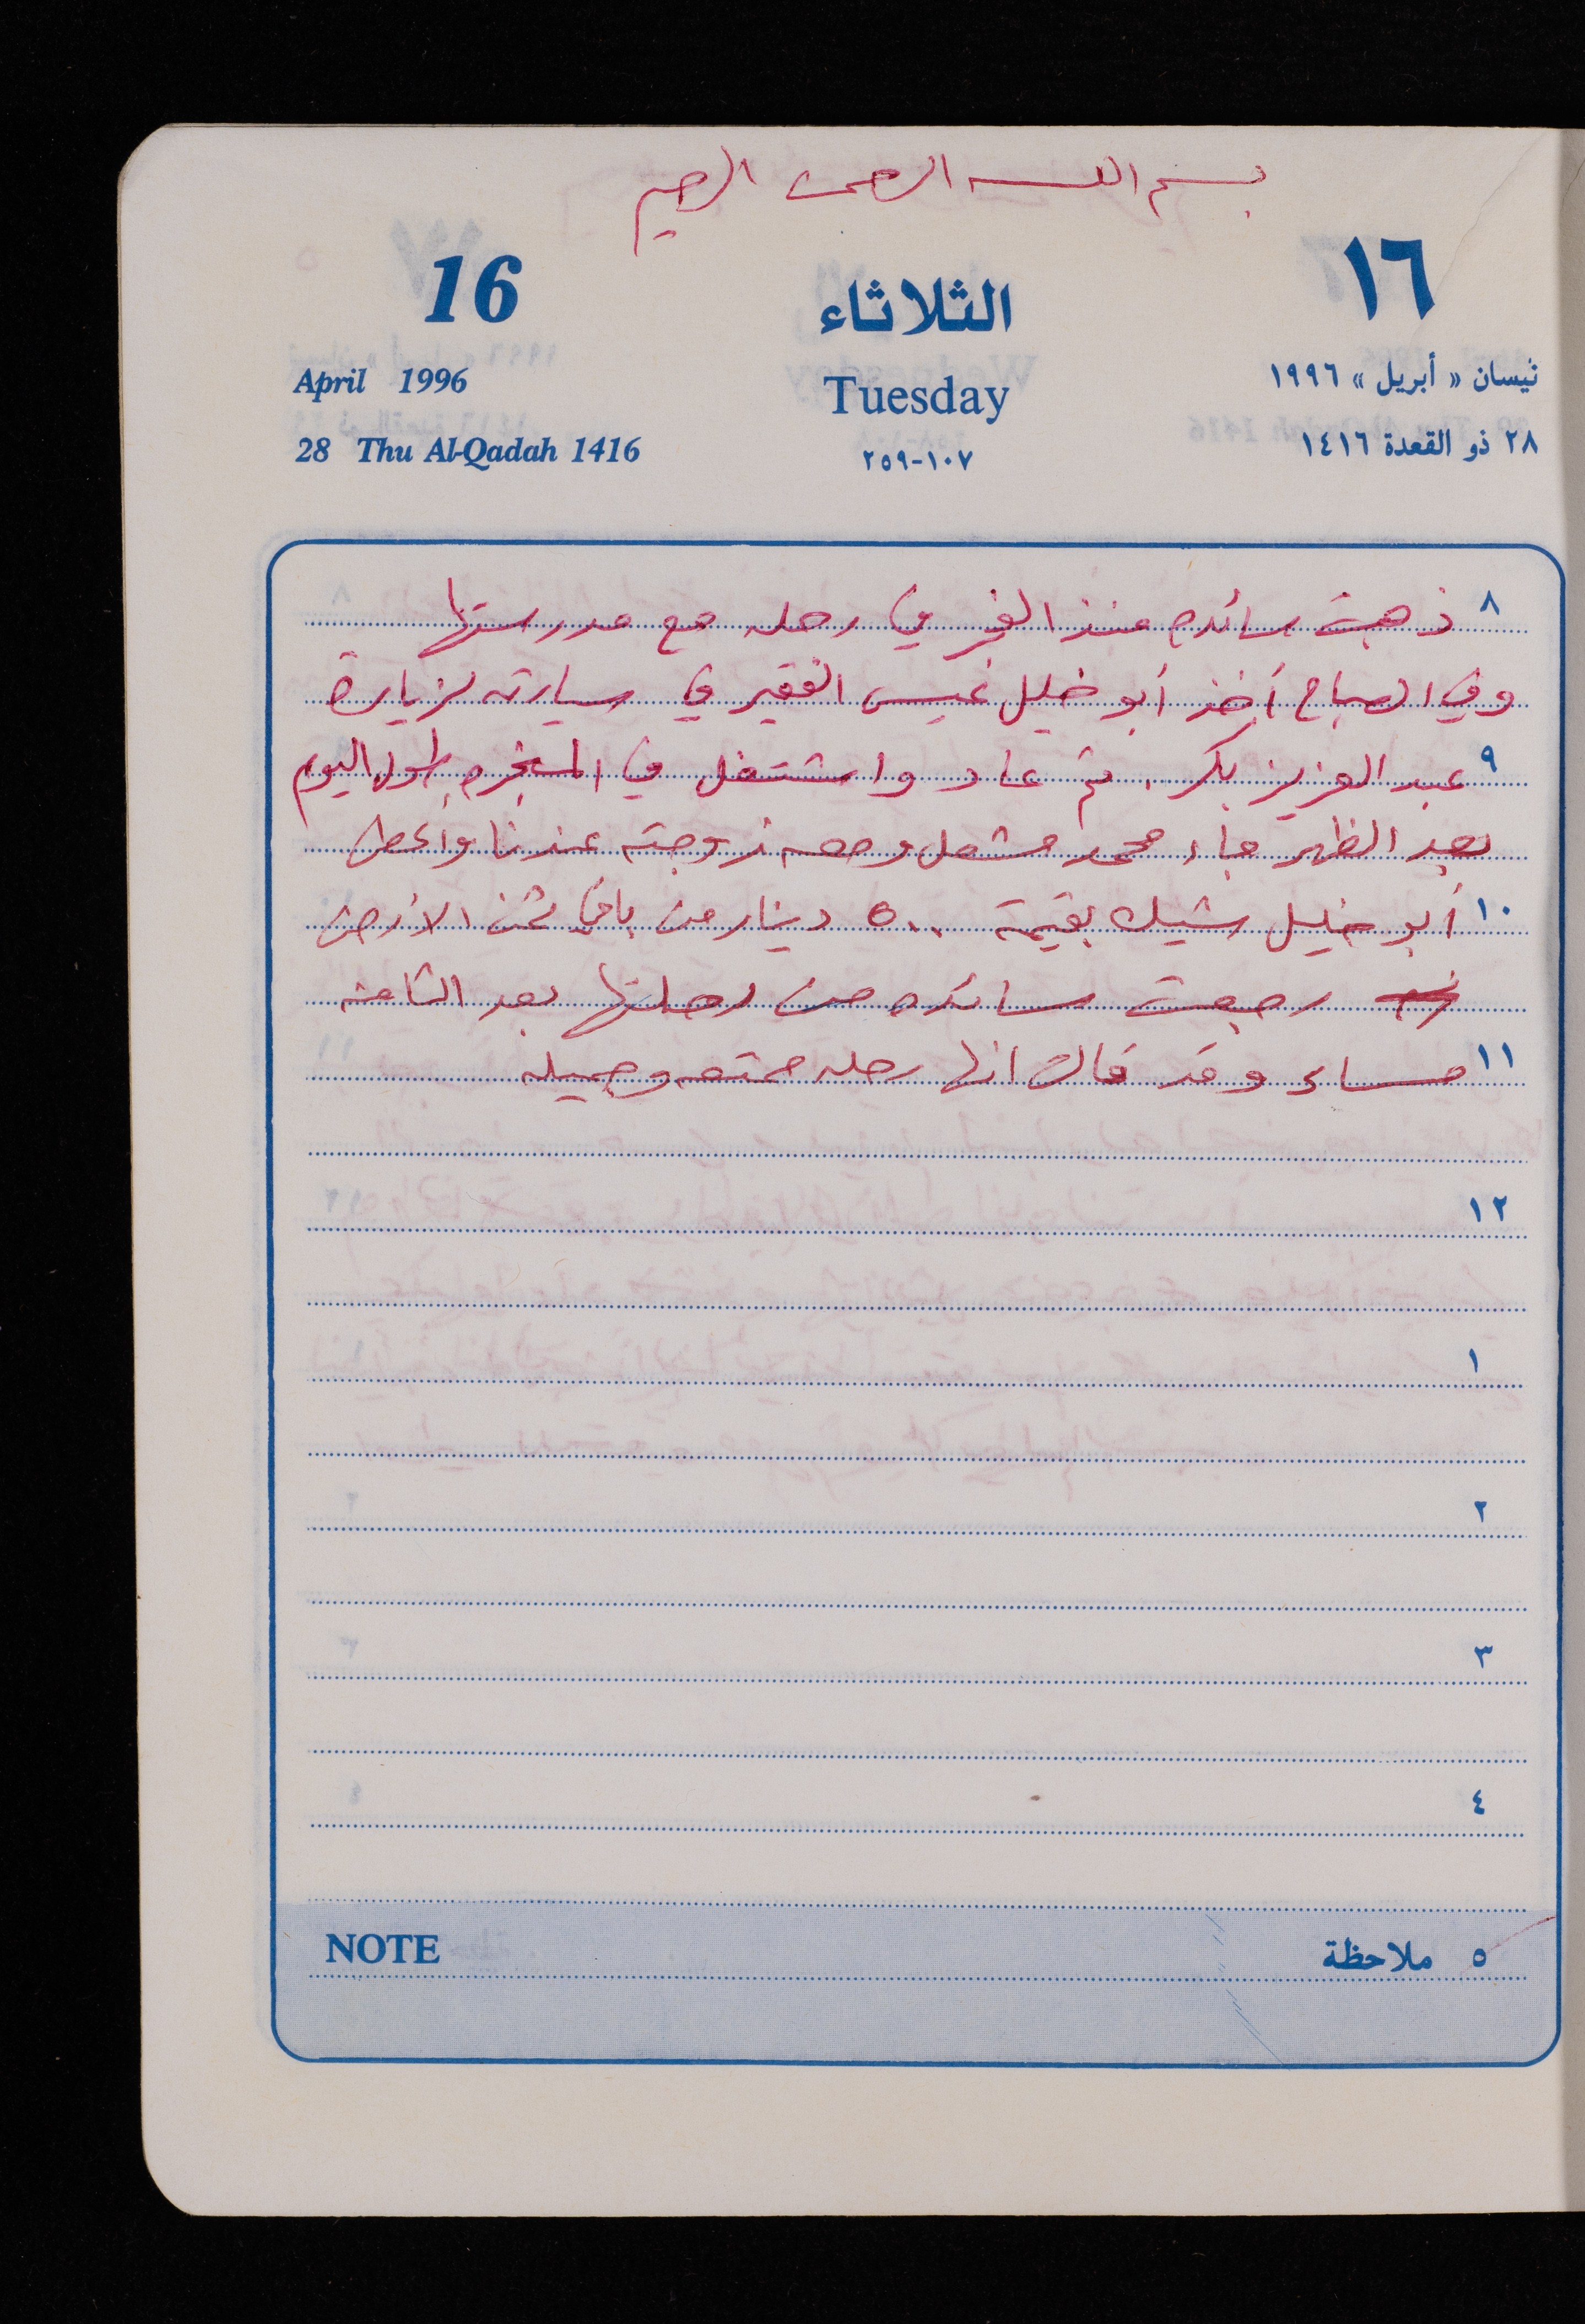 بسم الله الرحمن الرحيم
16 الثلاثاء ١٦
April 1996 Tuesday نيسان « أبريل » ١٩٩٦
28 Thu Al-Qadah 1416 ١٠٧-٢٥٩ ٢٨ ذو القعدة ١٤١٦
٨ ذهبت سائده منذ الفجر في رحله مع مدرستها
وفي الصباح أخذ أبو خليل عيسى الفقير في سيارته لزيارة
٩ عبد العزيز بكر. ثم عاد واشتغل في المنجره طول اليوم
بعد الظهر جاء محمد مشعل ومعه زوجته عندنا وأعطى
١٠ أبو خليل شيك بقيمة ٥٠٠ دينار من باقي ثمن الارض
رجعت سائده من رحلتها بعد الثامنه
١١ مساء وقد قالت انها رحله ممتعه وجميله
١٢
١
٢
٣
٤
NOTE ٥ ملاحظة